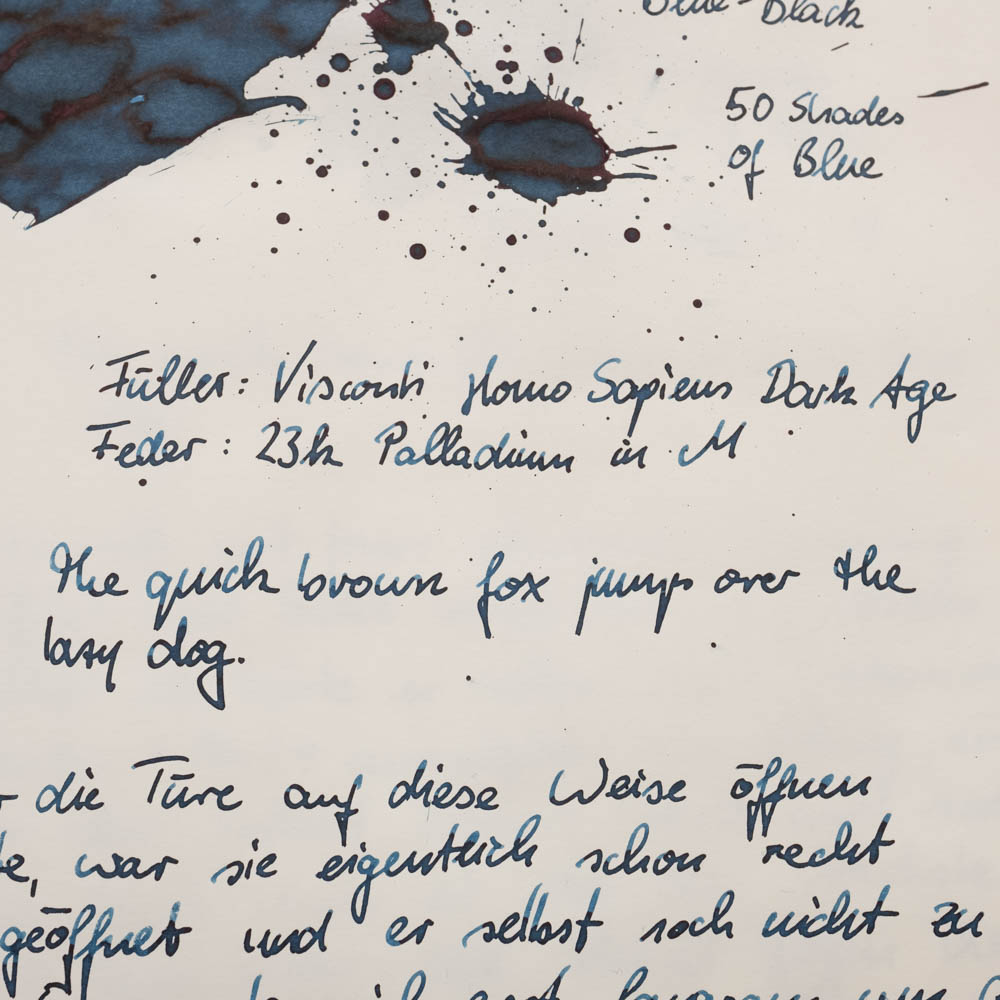 Blue-Black
50 Shades
of Blue
Füller: Visconti Homo Sapiens Dark Age
Feder: 23k Palladium in M
the quick brown fox jump over the
lazy dog.
die Türe auf diese Weise öffnen
war sie eigentlich schon recht
geöffnet und er selbst noch nicht zu